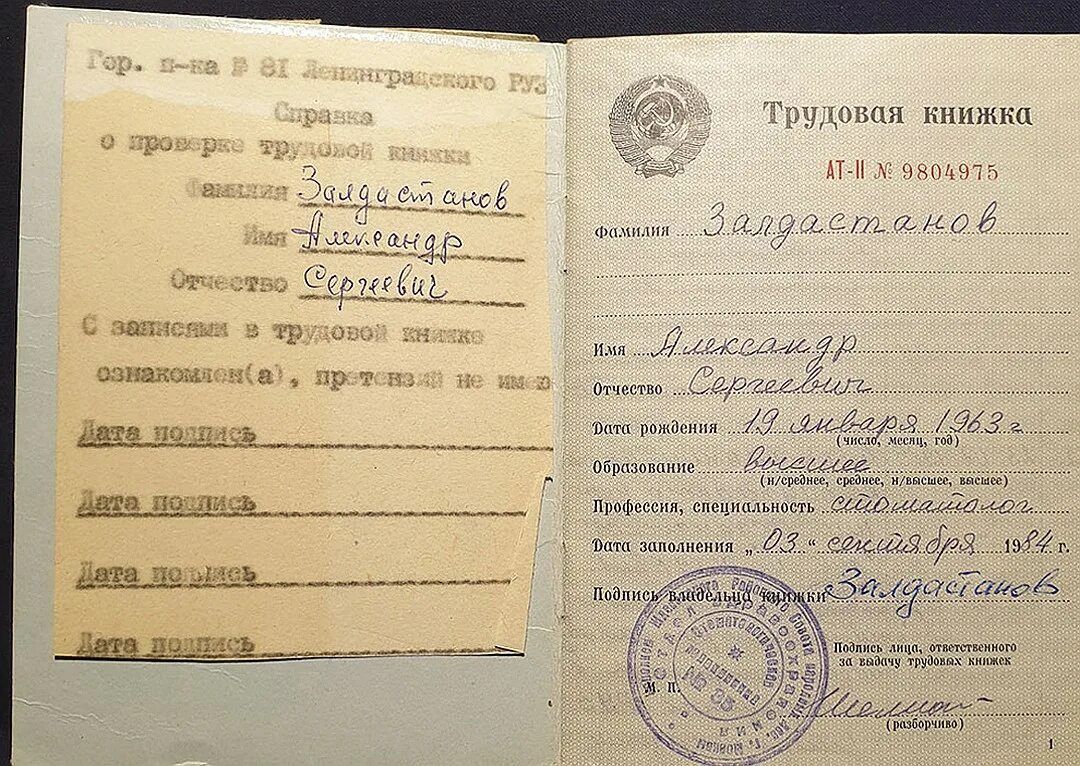 Гор. п-ка № 81 Ленинградского РУЗ
Справка
о проверке трудовой книжки
Фамилия Залдастанов
Имя Александр
Отчество Сергеевич
С записями в трудовой книжке
ознакомлен(а), претензий не имею
Дата подпись
Дата подпись
Дата подпись
Дата подпись
Трудовая книжка
АТ-II № 9804975
Фамилия Залдастанов
Имя Александр
Отчество Сергеевич
Дата рождения 19 января 1963 г
(число, месяц, год)
Образование высшее
(н/среднее, среднее, н/высшее, высшее)
Профессия, специальность стоматолог
Дата заполнения „03" сентября 1984 г.
Подпись владельца книжки Залдастанов
Подпись лица, ответственного
за выдачу трудовых книжек
М. П.
(разборчиво)
Отдел здравоохранения
Стоматологическая
поликлиника
№ 23
1